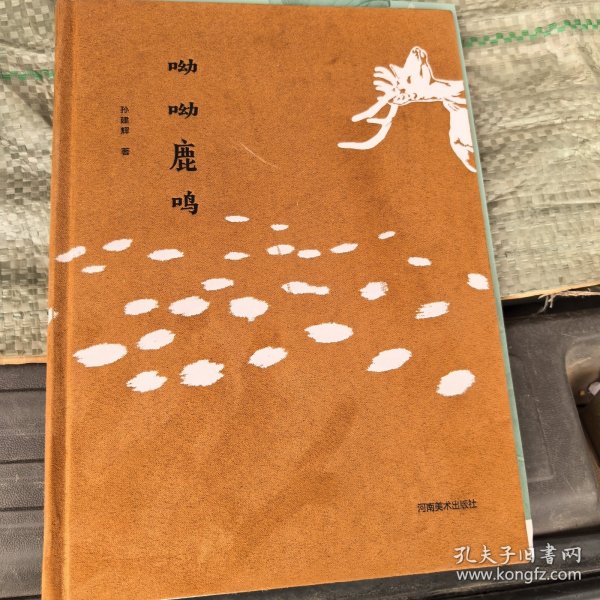 呦呦鹿鸣
孙建辉 著
河南美术出版社
孔夫子旧书网
www.kongfz.com